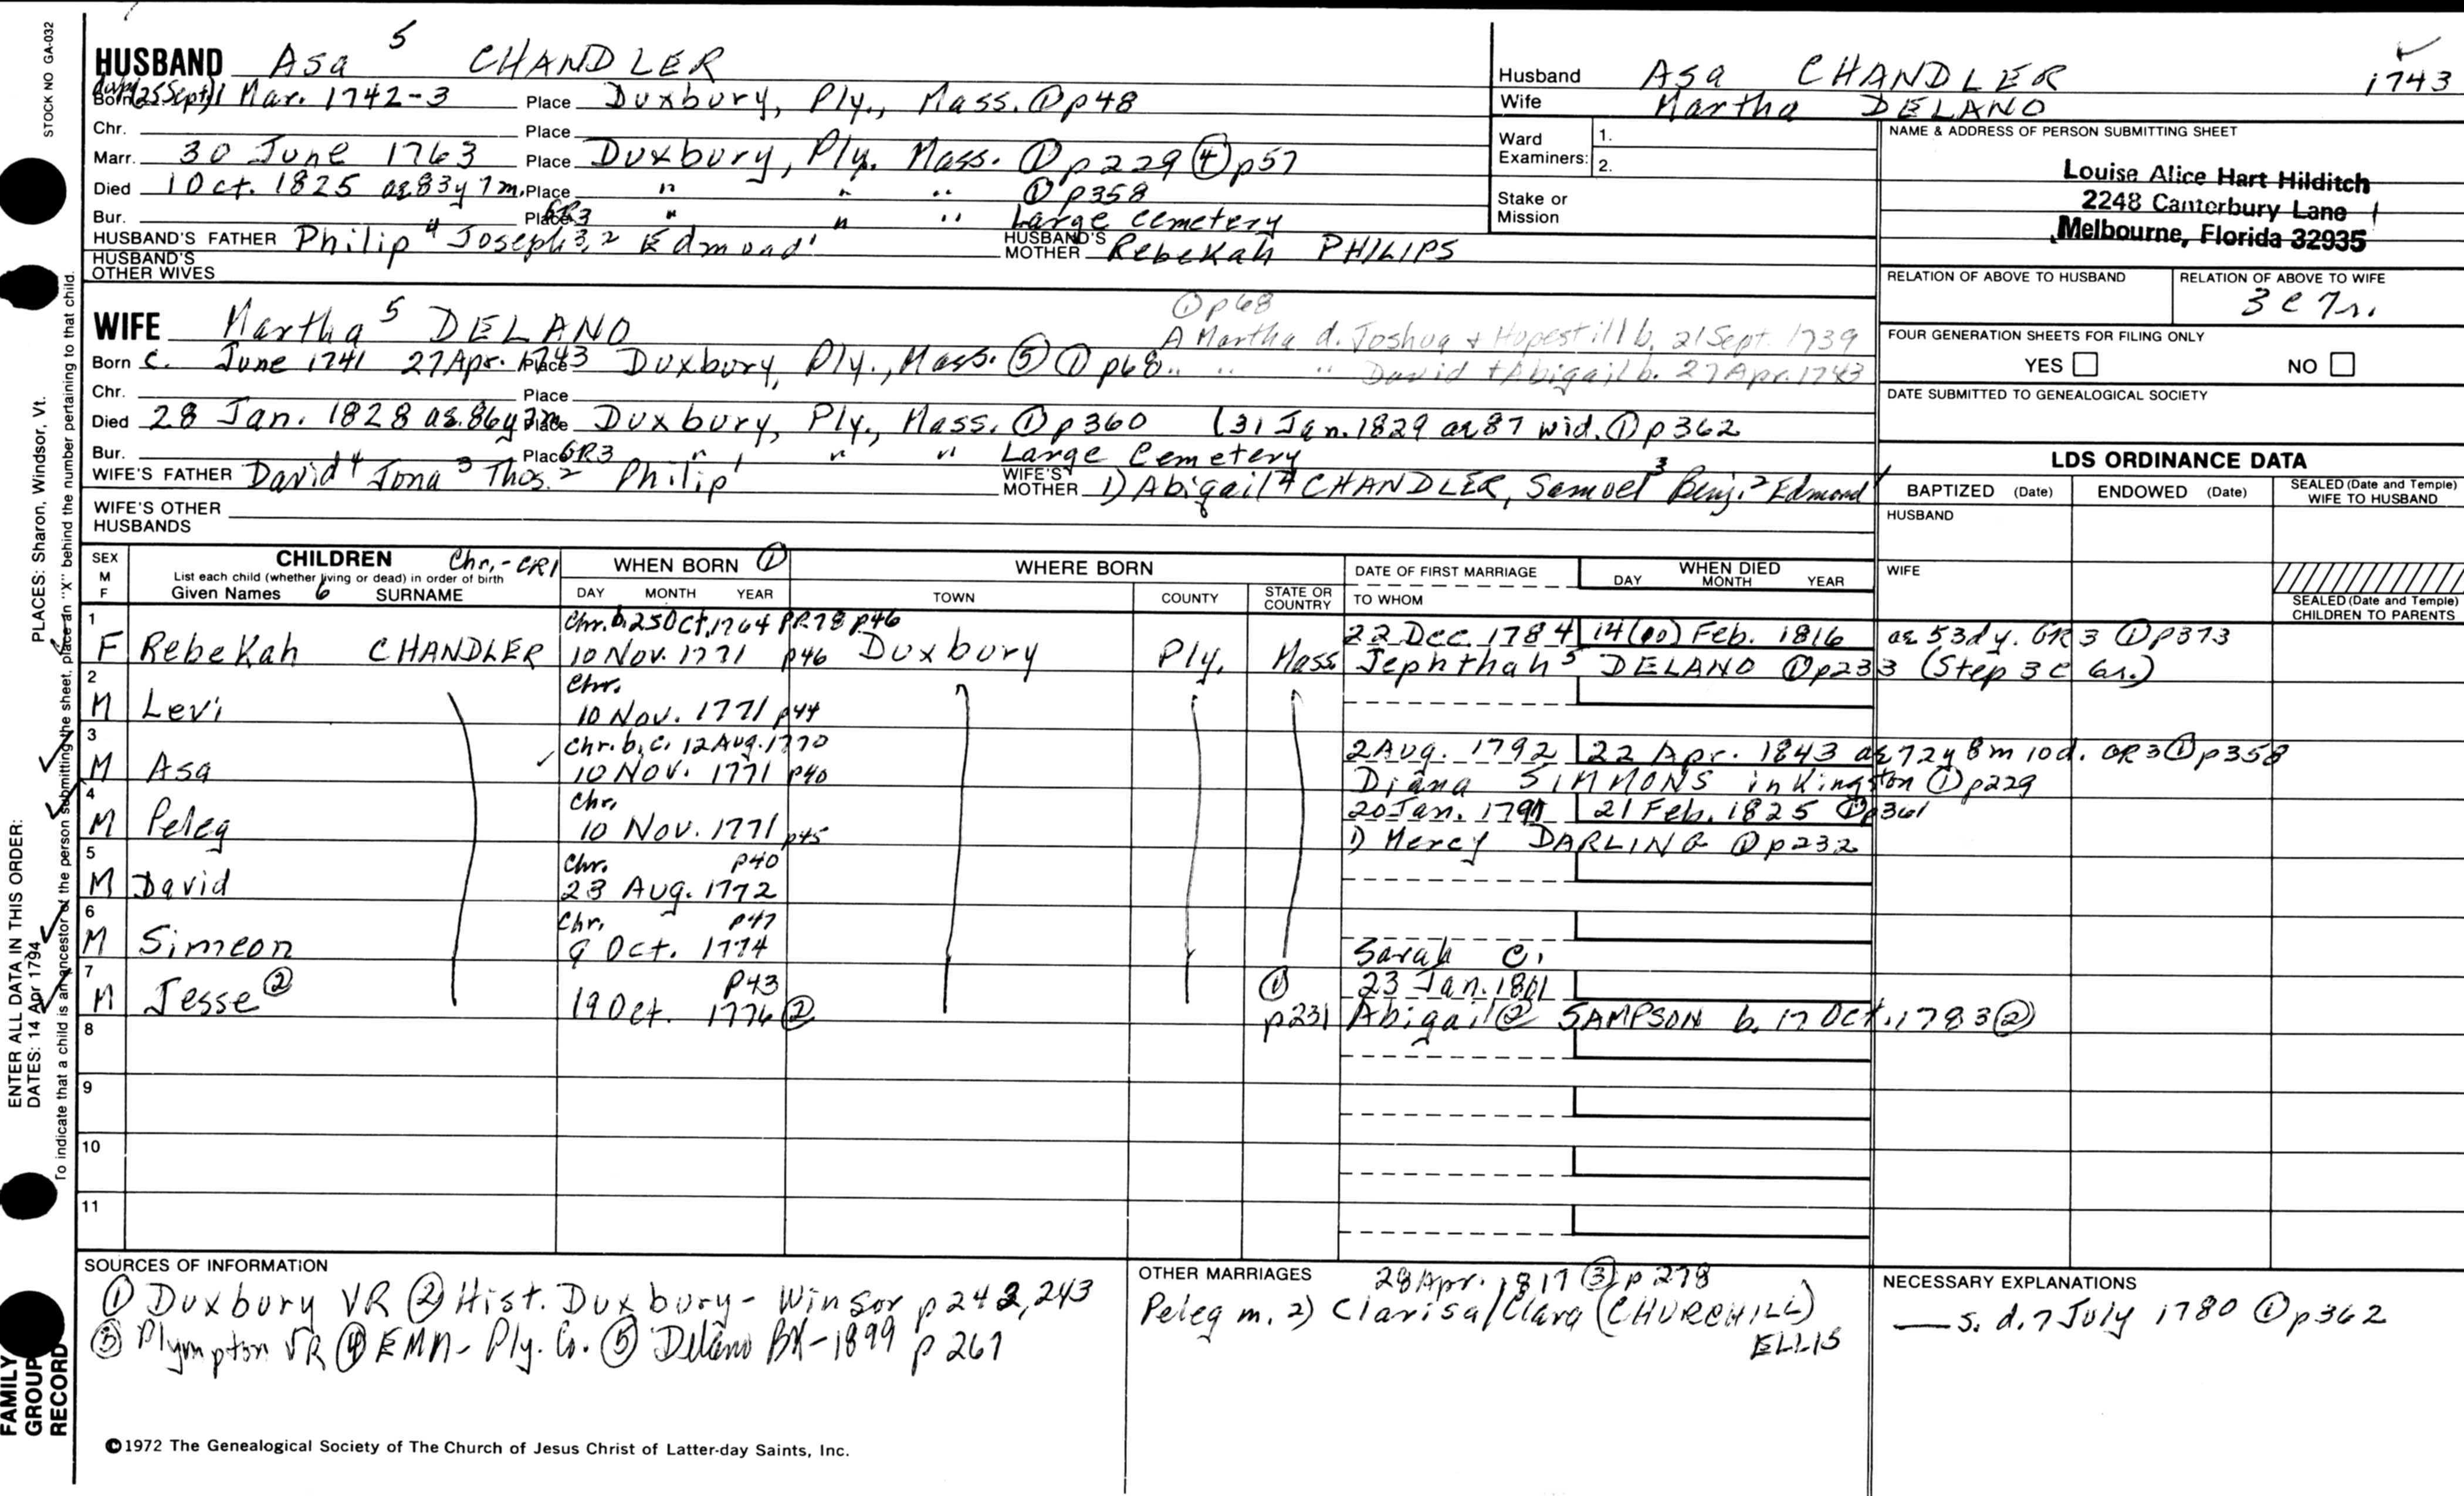 STOCK NO GA-032
HUSBAND Asa 5 CHANDLER
Born (25 Sept) 1 Mar. 1742-3 Place Duxbury, Ply., Mass. ① p48
Chr. Place
Marr. 30 June 1763 Place Duxbury, Ply. Mass. ① p229 ④ p57
Died 1 Oct. 1825 ae 83y 7m. Place " " " ① p358
Bur. Place GR3 " " " Large Cemetery
HUSBAND'S FATHER Philip 4 Joseph 3,2 Edmond 1 HUSBAND'S MOTHER Rebekah PHILIPS
HUSBAND'S OTHER WIVES
Husband Asa CHANDLER 1743
Wife Martha DELANO
Ward Examiners: 1.
2.
Stake or Mission
NAME & ADDRESS OF PERSON SUBMITTING SHEET
Louise Alice Hart Hilditch
2248 Canterbury Lane
Melbourne, Florida 32935
RELATION OF ABOVE TO HUSBAND
RELATION OF ABOVE TO WIFE
3 c 7r.
FOUR GENERATION SHEETS FOR FILING ONLY
YES NO
DATE SUBMITTED TO GENEALOGICAL SOCIETY
① p68
WIFE Martha 5 DELANO A Martha d. Joshua + Hopestill b. 21 Sept. 1739
Born c. June 1741 27 Apr. 1743 Place Duxbury, Ply., Mass. ⑤ ① p68 " " " David + Abigail b. 27 Apr. 1743
Chr. Place
Died 28 Jan. 1828 ae. 86y 7m Place Duxbury, Ply., Mass. ① p360 (31 Jan. 1829 ae 87 wid. ① p362
Bur. Place GR3 " " " Large Cemetery
WIFE'S FATHER David 4 Jona 3 Thos. 2 Philip 1 WIFE'S MOTHER 1) Abigail 4 CHANDLER, Samuel 3 Benj. 2 Edmond 1
WIFE'S OTHER HUSBANDS
LDS ORDINANCE DATA
BAPTIZED (Date) ENDOWED (Date) SEALED (Date and Temple) WIFE TO HUSBAND
HUSBAND
WIFE
SEALED (Date and Temple) CHILDREN TO PARENTS
SEX M F
CHILDREN Chr.-CR1
List each child (whether living or dead) in order of birth
Given Names 6 SURNAME
WHEN BORN ①
DAY MONTH YEAR
WHERE BORN
TOWN COUNTY STATE OR COUNTRY
DATE OF FIRST MARRIAGE
TO WHOM
WHEN DIED
DAY MONTH YEAR
1 Chr. b. 25 Oct. 1764 PR78 p46 22 Dec. 1784 14 (10) Feb. 1816 ae 53d y. GR3 ① p373
F Rebekah CHANDLER 10 Nov. 1771 p46 Duxbury Ply. Mass Jephthah 5 DELANO ① p233 (Step 3 c 6r.)
2 Chr.
M Levi 10 Nov. 1771 p44
3 Chr. b. c. 12 Aug. 1770 2 Aug. 1792 22 Apr. 1843 ae 72y 8m 10d. GR3 ① p358
M Asa 10 Nov. 1771 p40 Diana SIMMONS in Kingston ① p229
4 Chr. 20 Jan. 1791 21 Feb. 1825 ① p361
M Peleg 10 Nov. 1771 p45 1) Mercy DARLING ① p232
5 Chr. p40
M David 23 Aug. 1772
6 Chr. p47
M Simeon 9 Oct. 1774 Sarah C.
7 p43 ① 23 Jan. 1801
M Jesse ② 19 Oct. 1776 ② p231 Abigail ② SAMPSON b. 17 Oct. 1783 ②
8
9
10
11
SOURCES OF INFORMATION
① Duxbury VR ② Hist. Duxbury - Winsor p 242, 243
③ Plympton VR ④ EMM - Ply. Co. ⑤ Delano BK - 1899 p 267
OTHER MARRIAGES 28 Apr. 1817 ③ p 278
Peleg m. 2) Clarisa/Clara (CHURCHILL)
ELLIS
NECESSARY EXPLANATIONS
— s. d. 7 July 1780 ① p362
©1972 The Genealogical Society of The Church of Jesus Christ of Latter-day Saints, Inc.
PLACES: Sharon, Windsor, Vt.
ENTER ALL DATA IN THIS ORDER:
DATES: 14 Apr 1794
To indicate that a child is an ancestor of the person submitting the sheet, place an "X" behind the number pertaining to that child.
FAMILY GROUP RECORD